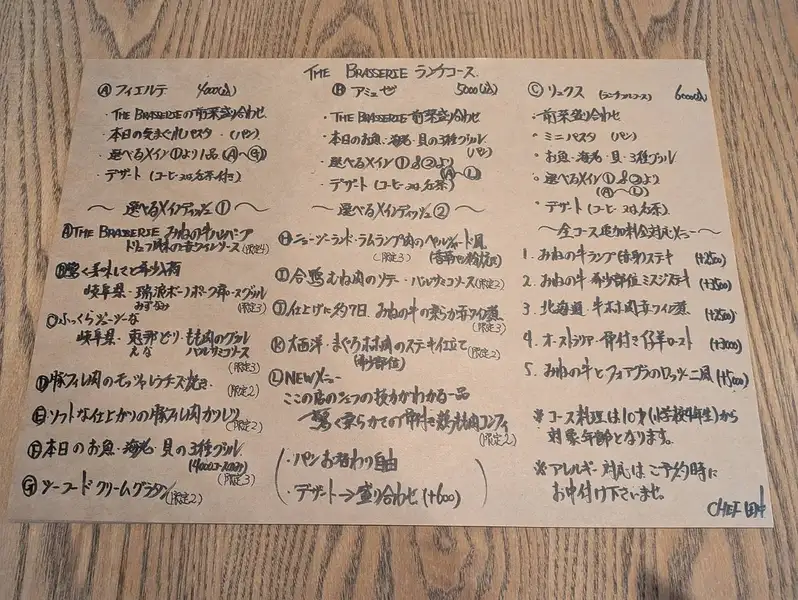 THE BRASSERIE ランチコース
Ⓐ フィエルテ 4000(込)
・THE BRASSERIEの前菜盛り合わせ
・本日の気まぐれパスタ・(パン)
・選べるメイン①より1品 (Ⓐ〜Ⓖ)
・デザート (コーヒーor紅茶付き)
〜選べるメインディッシュ①〜
Ⓐ THE BRASSERIE みねの牛ハンバーグ
トリュフ味の赤ワインソース (限定4)
Ⓑ驚く美味しさと希少入荷
岐阜県・瑞浪ボーノポーク肩ロースグリル
みずなみ (限定3)
Ⓒふっくらジューシーな
岐阜県・恵那どり・もも肉のグリル
えな バルサミコソース
(限定3)
Ⓓ豚フィレ肉のモッツァレラチーズ焼き (限定2)
Ⓔソフトな仕上がりの豚フィレ肉カツレツ
(限定2)
Ⓕ本日のお魚・海老・貝の3種グリル
(4000コースのみ)
(限定3)
Ⓖシーフードクリームグラタン (限定2)
Ⓑ アミュゼ 5000(込)
・THE BRASSERIE 前菜盛り合わせ
・本日のお魚・海老・貝の3種グリル
(パン)
・選べるメイン①&②より
(Ⓐ〜Ⓛ)
・デザート (コーヒーor紅茶)
〜選べるメインディッシュ②〜
Ⓗニュージーランド・ラムランプ肉のペルシャード風
(限定3)
Ⓘ合鴨むね肉のソテー・バルサミコソース (限定2)
Ⓙ仕上げに約7日 みねの牛の柔らか赤ワイン煮
(限定3)
Ⓚ大西洋・まぐろホホ肉のステーキ仕立て (限定2)
(希少部位)
Ⓛ NEWメニュー
ここの店のシェフの技力がわかる一品
驚く柔らかさでの骨付き鶏もも肉コンフィ
(限定2)
・パンお替わり自由
・デザート→盛り合わせ (+600)
Ⓒ リュクス (ランチフルコース) 6000(込)
・前菜盛り合わせ
・ミニパスタ (パン)
・お魚・海老・貝・3種グリル
・選べるメイン①&②より
(Ⓐ〜Ⓛ)
・デザート (コーヒーor紅茶)
〜全コース追加料金対応メニュー〜
1. みねの牛ランプ(赤身)ステーキ (+2500)
2. みねの牛 希少部位ミスジステーキ (+3500)
3. 北海道・牛ホホ肉赤ワイン煮 (+2500)
4. オーストラリア・骨付き仔羊ロースト (+3000)
5. みねの牛とフォアグラのロッシーニ風 (+5000)
※コース料理は10才(小学校4年生)から
対象年齢となります。
※アレルギー対応はご予約時に
お申付け下さいませ。
CHEF 田中